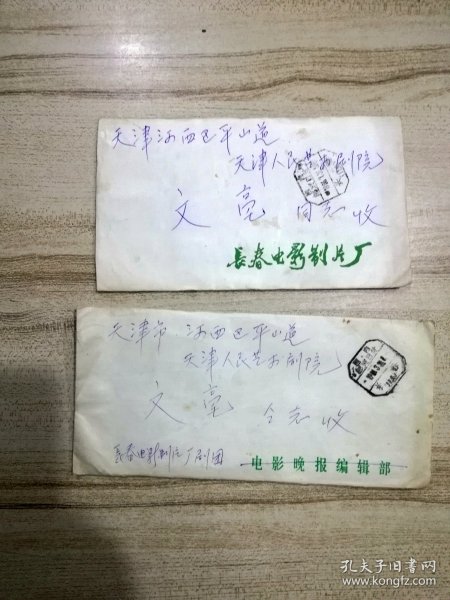 天津河西区平山道
天津人民艺术剧院
文亮 同志收
长春电影制片厂
天津市 河西区平山道
天津人民艺术剧院
文亮 仝志收
长春电影制片厂剧团
电影晚报编辑部
孔夫子旧书网
www.kongfz.com